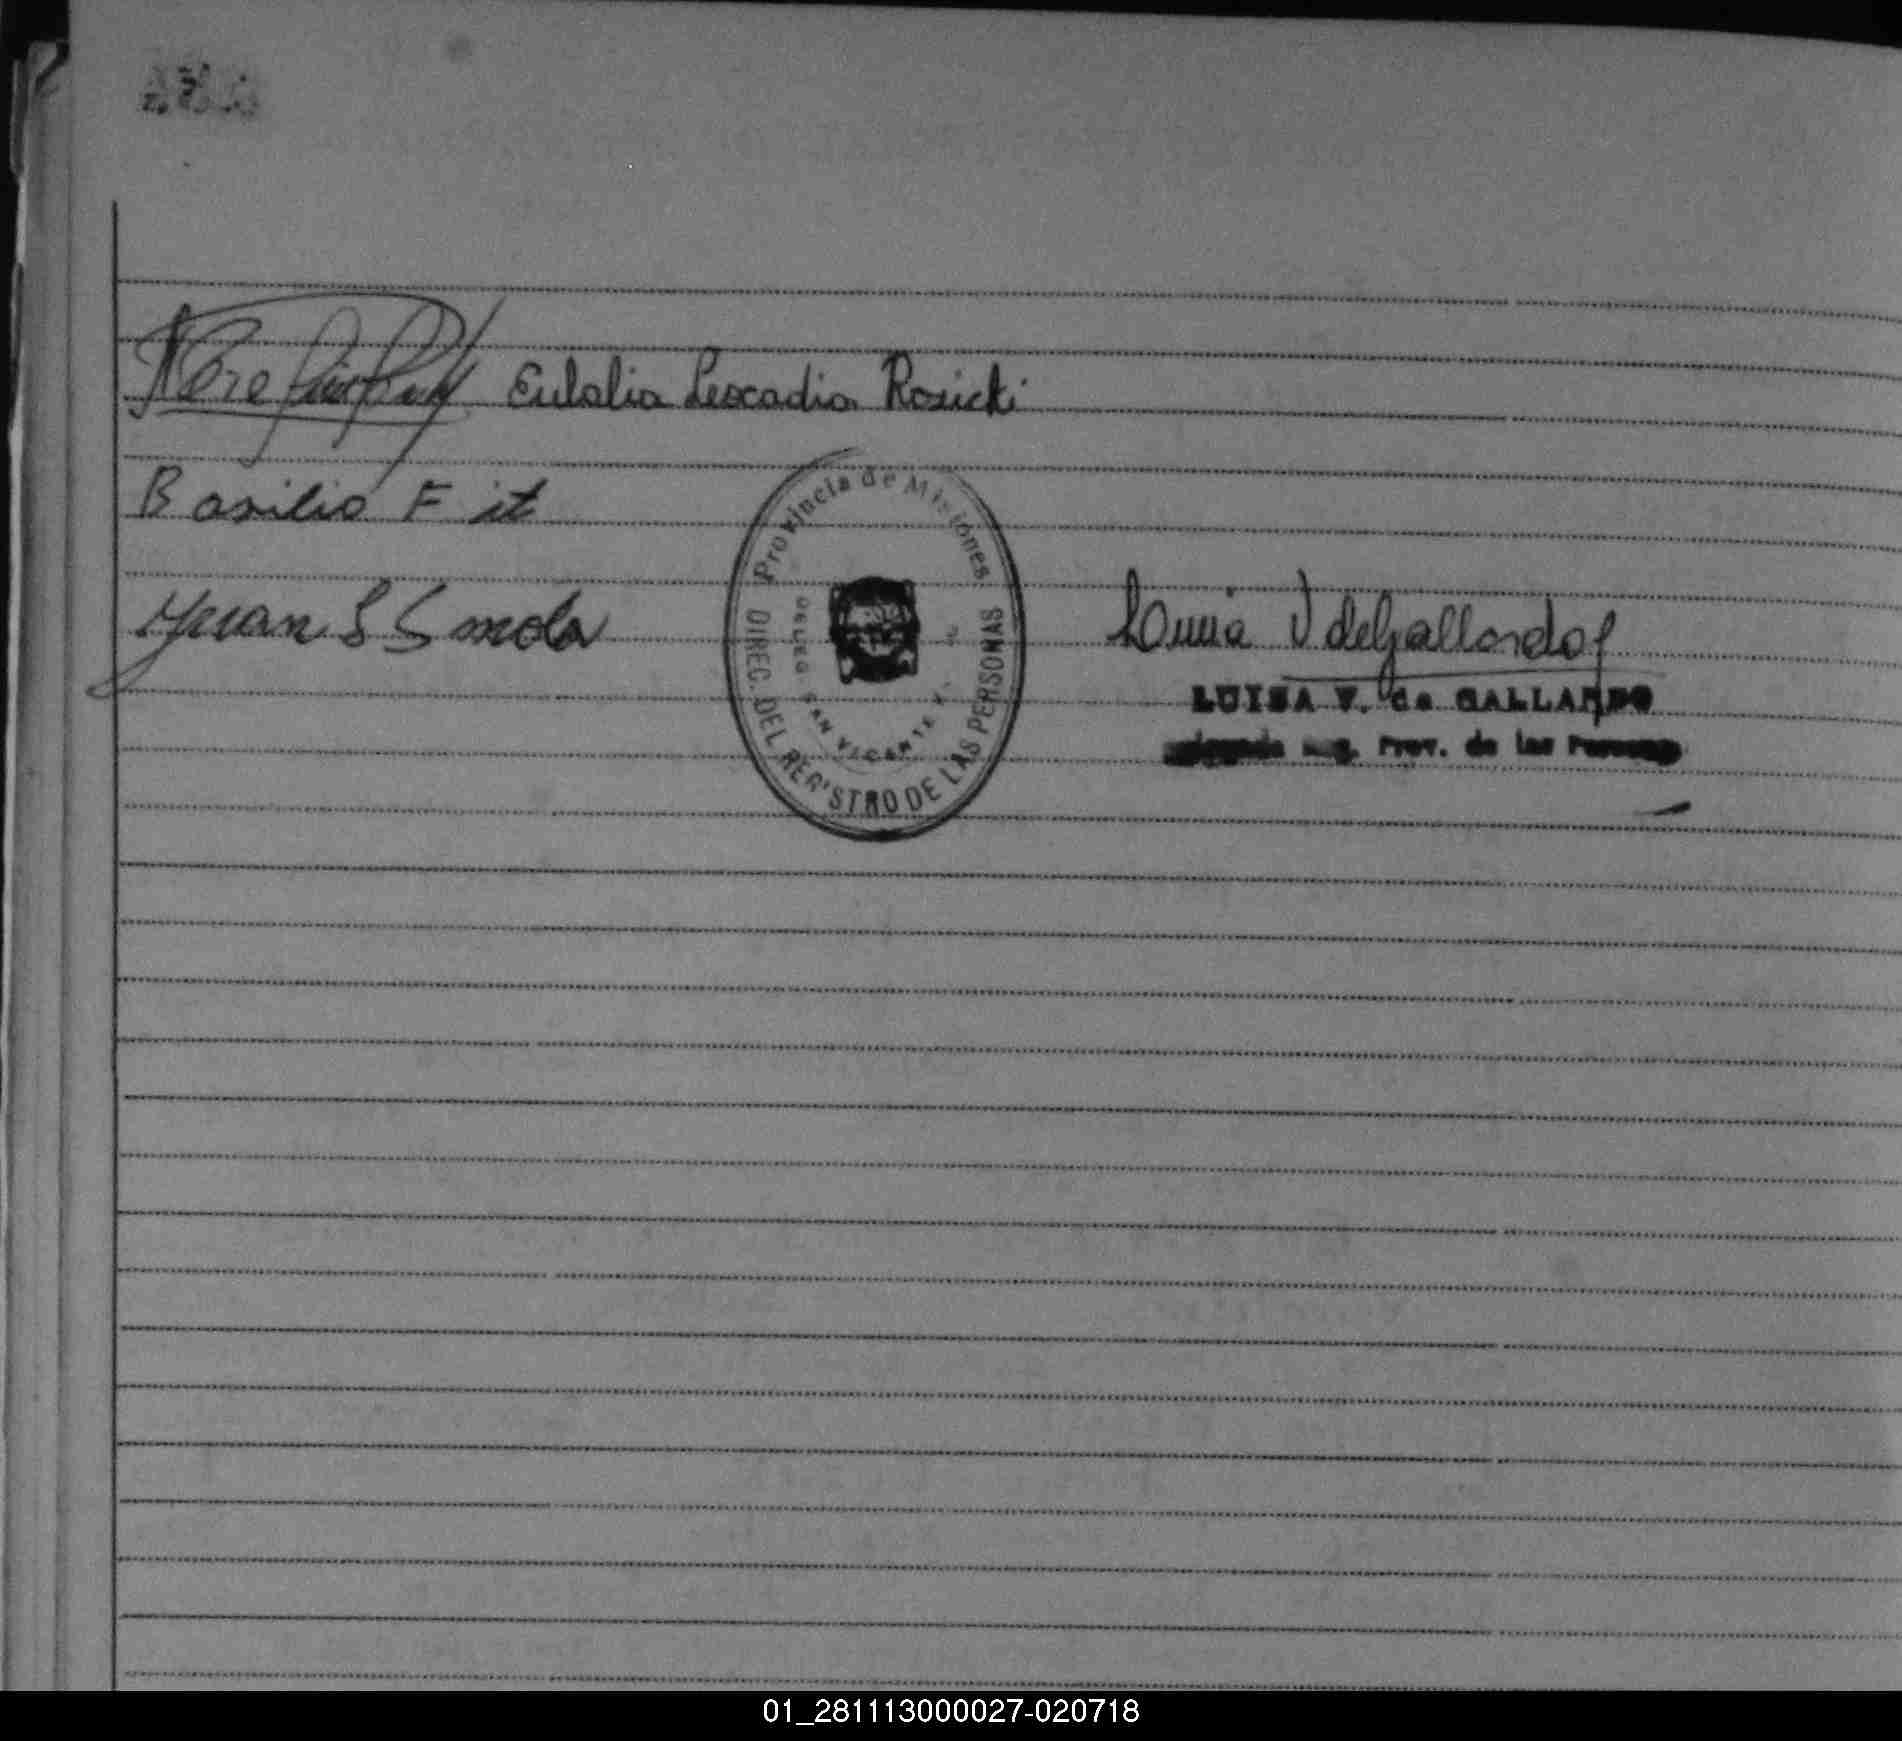 Eulalia Leocadia Rosicki
Basilio F it
Juan S Smola
Provincia de Misiones
DIREC. DEL REGISTRO DE LAS PERSONAS
SAN VICENTE
Luisa V de Gallardo
LUISA V. de GALLARDO
Prov. de las Personas
01_281113000027-020718